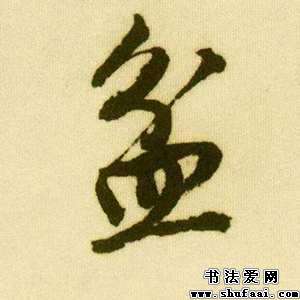 盆
书法爱网
www.shufaai.com